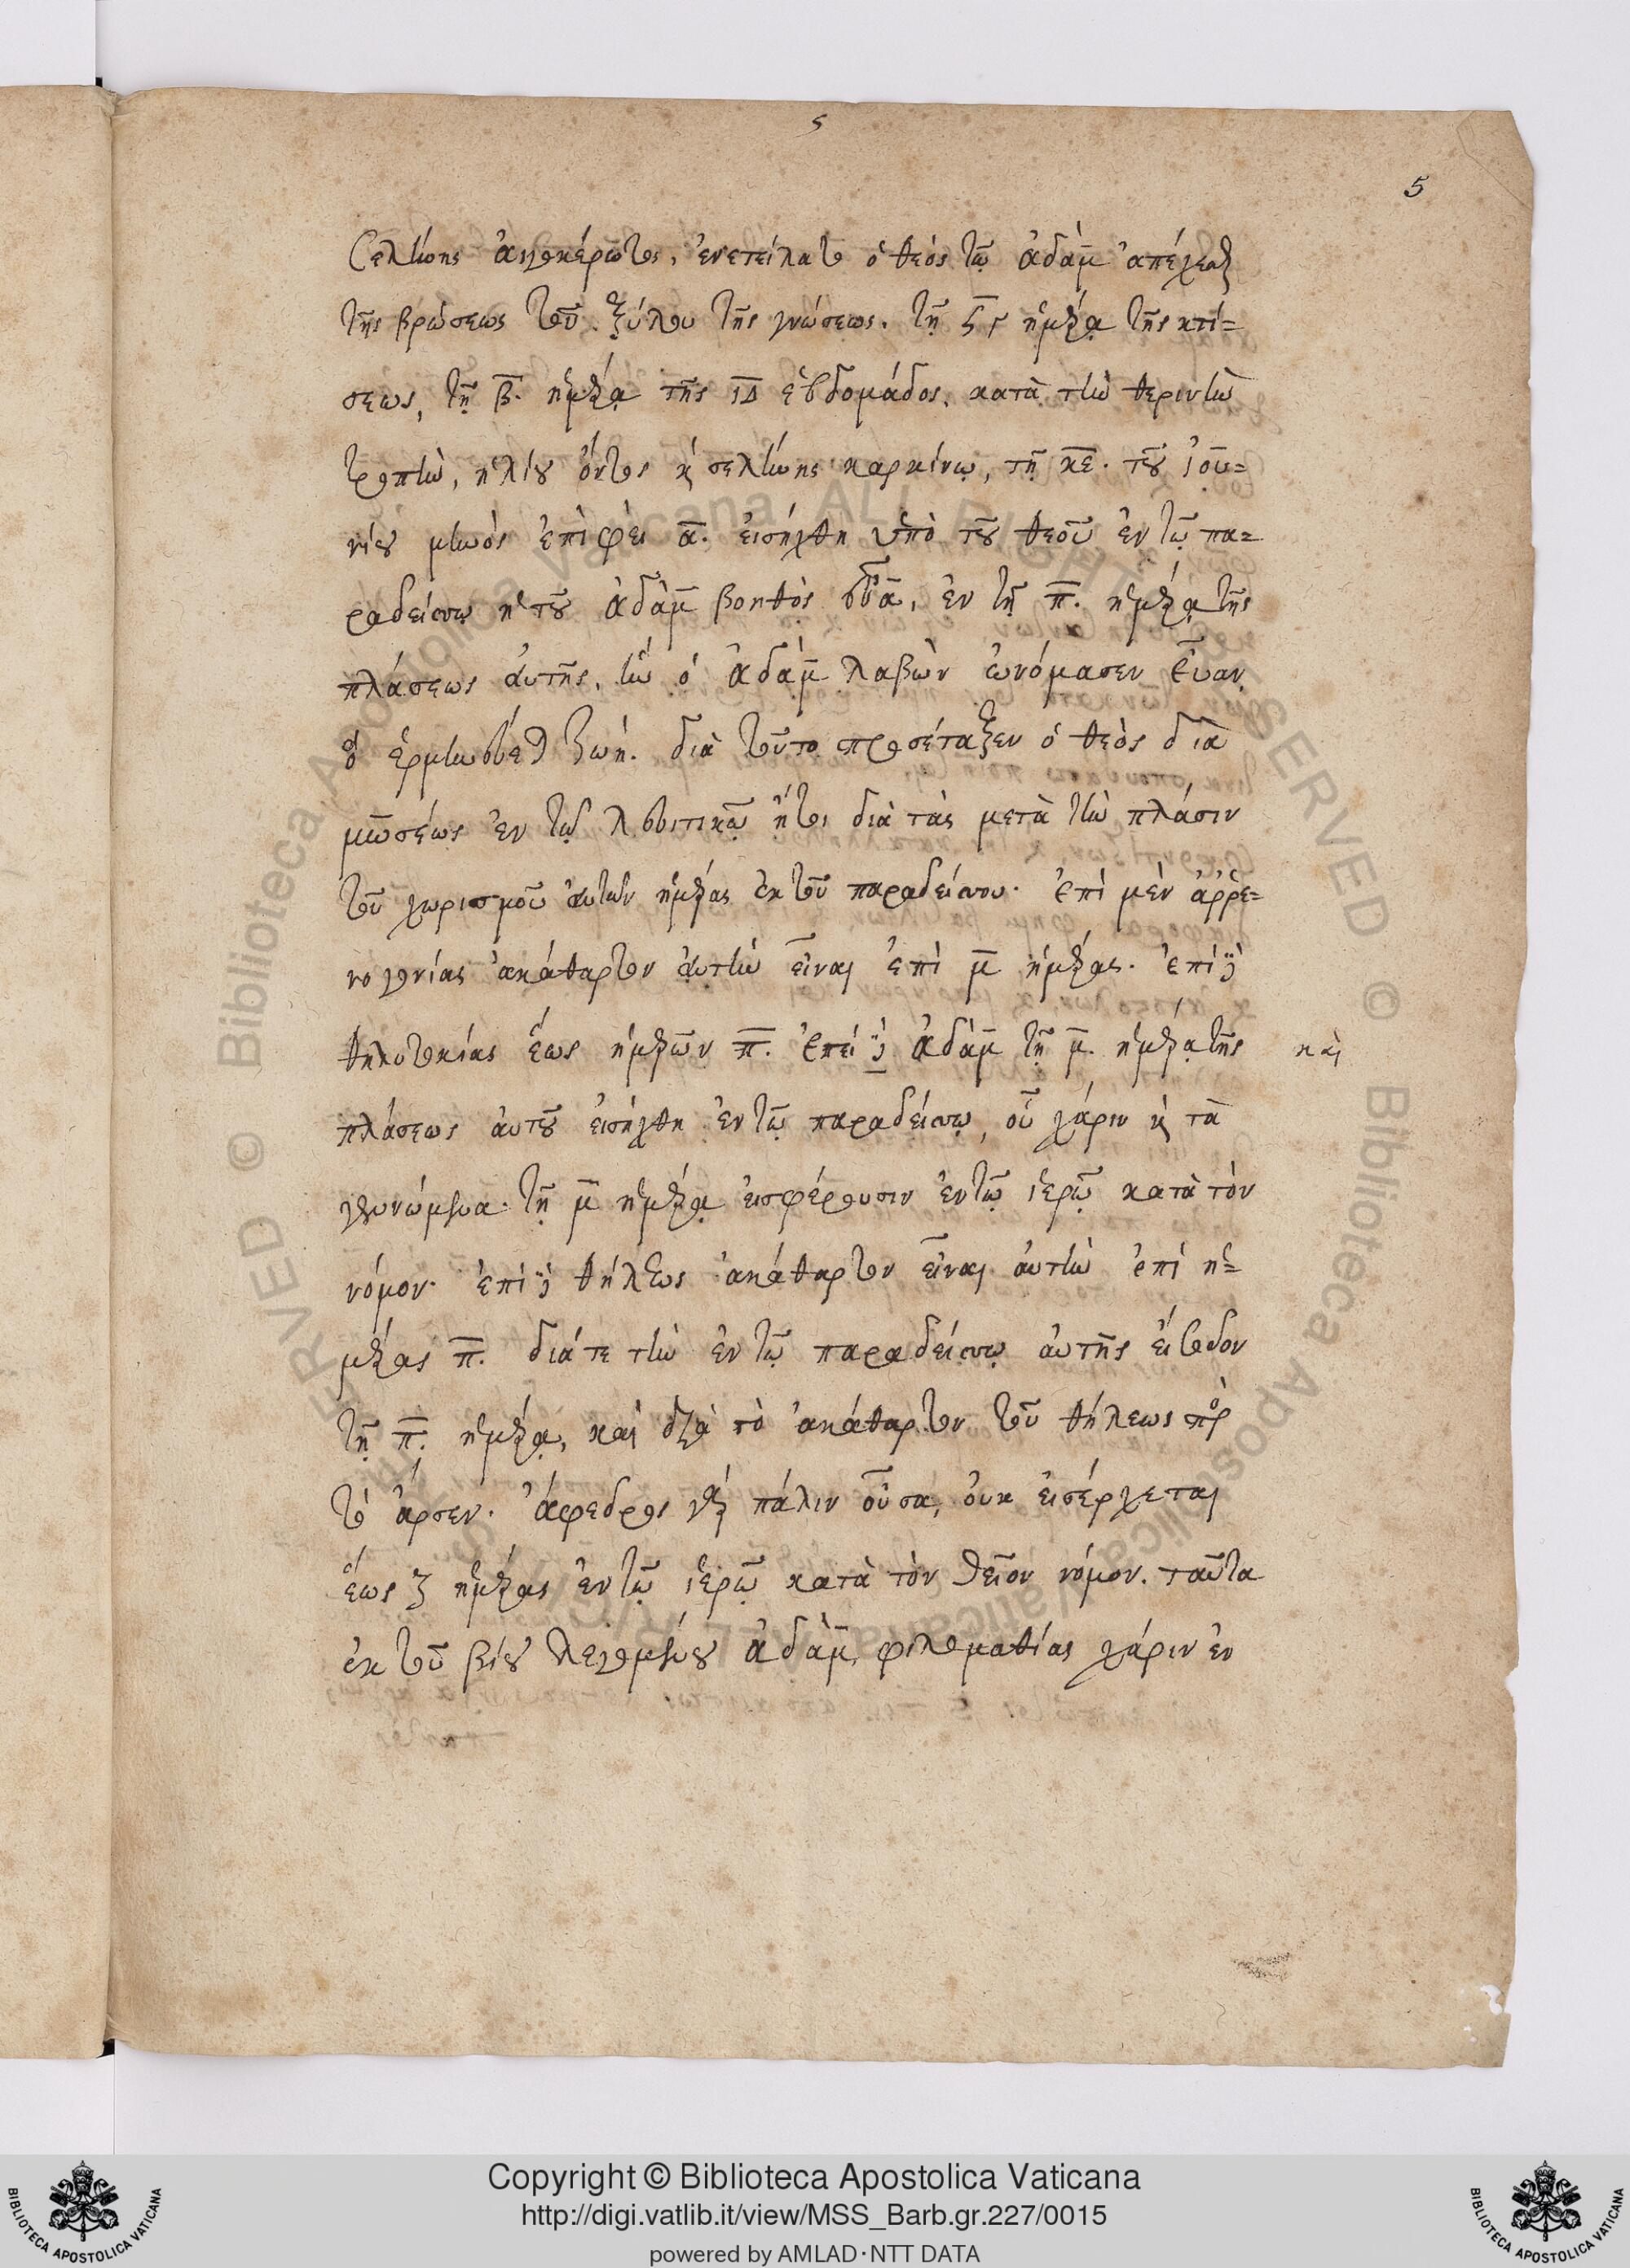 5
5
σελήνης αἰγοκέρωτος, ἐνετείλατο ὁ θεὸς τῷ ἀδὰμ ἀπέχεσθαι
τῆς βρώσεως τοῦ ξύλου τῆς γνώσεως. τῇ ἡμέρᾳ τῆς κτί=
σεως, τῇ β. ἡμέρᾳ τῆς ιδ ἑβδομάδος. κατὰ τὴν θερινὴν
τροπὴν, ἡλίου ὄντος κ̀ σελήνης καρκίνῳ, τῇ κε. τοῦ ἰου=
νίου μηνὸς ἐπιφὶ α. εἰσήχθη ὑπὸ τοῦ θεοῦ ἐν τῷ πα=
ραδείσῳ ἡ τοῦ ἀδὰμ βοηθὸς εὔα, ἐν τῇ π. ἡμέρᾳ τῆς
πλάσεως αὐτῆς, ἣν ὁ ἀδὰμ λαβὼν ὠνόμασεν εὔαν
ὃ ἑρμηνεύεται ζωή. διὰ τοῦτο προσέταξεν ὁ θεὸς διὰ
μωσέως ἐν τῷ λευιτικῷ ἤτοι διὰ τὰς μετὰ τὴν πλάσιν
τοῦ χωρισμοῦ αὐτῶν ἡμέρας ἐκ τοῦ παραδείσου. ἐπὶ μὲν ἀῤῥε=
νογονίας ἀκάθαρτον αὐτὴν εἶναι ἐπὶ μ ἡμέρας. ἐπὶ δὲ
θηλυτοκίας ἕως ἡμερῶν π. ἐπεὶ δὲ ἀδὰμ τῇ μ. ἡμέρᾳ τῆς
καὶ
πλάσεως αὐτοῦ εἰσήχθη ἐν τῷ παραδείσῳ, οὗ χάριν κ̀ τὰ
γεννώμενα τῇ μ ἡμέρᾳ εἰσφέρουσιν ἐν τῷ ἱερῷ κατὰ τὸν
νόμον. ἐπὶ δὲ θήλεως ἀκάθαρτον εἶναι αὐτὴν ἐπὶ ἡ=
μέρας π. διά τε τὴν ἐν τῷ παραδείσῳ αὐτῆς εἴσοδον
τῇ π. ἡμέρᾳ, καὶ διὰ τὸ ἀκάθαρτον τοῦ θήλεως πρὸς
τὸ ἄρσεν. ἄφεδρος γὰρ πάλιν οὖσα, οὐκ εἰσέρχεται
ἕως ζ ἡμέρας ἐν τῷ ἱερῷ κατὰ τὸν θεῖον νόμον. ταῦτα
ἐκ τοῦ βίου λεγομένου ἀδὰμ φιλομαθίας χάριν ἐν
Copyright © Biblioteca Apostolica Vaticana
http://digi.vatlib.it/view/MSS_Barb.gr.227/0015
powered by AMLAD·NTT DATA